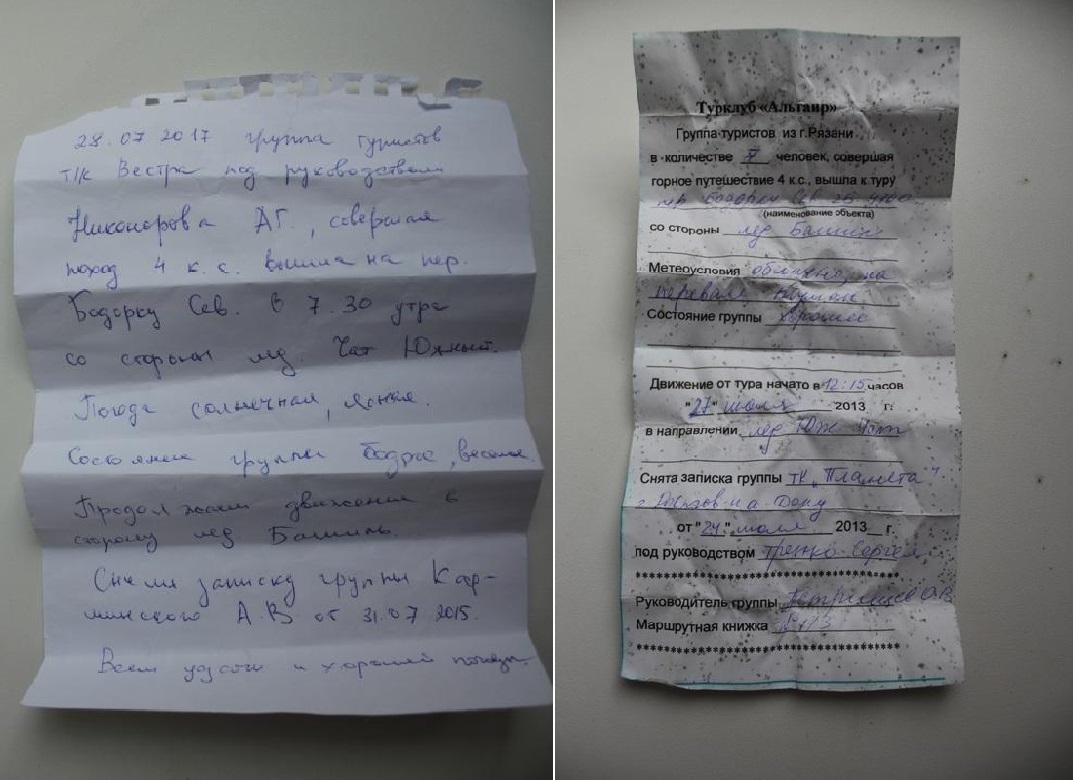 28.07 2017 группа туристов
т/к Вестра под руководством
Никонорова А.Г., совершая
поход 4 к.с. вышла на пер.
Бодорку Сев. в 7.30 утра
со стороны лед. Чат Южный.
Погода солнечная, ясная.
Состояние группы бодрое, веселое.
Продолжаем движение в
сторону лед Башиль.
Сняли записку группы Кар-
минского А.В от 31.07 2015.
Всем удачи и хорошей погоды.
Турклуб «Альтаир»
Группа туристов из г.Рязани
в количестве 7 человек, совершая
горное путешествие 4 к.с., вышла к туру
пер Бодорку Сев 2Б
(наименование объекта)
со стороны лед Башиль
Метеоусловия облачно, на
перевале туман
Состояние группы хорошее
Движение от тура начато в 12:15 часов
"27" июля 2013 г.
в направлении лед Юж Чат
Снята записка группы тк "Планета"
г Ростов-на-Дону
от "24" июля 2013 г.
под руководством Сергея
************************************
Руководитель группы О.В
Маршрутная книжка
************************************